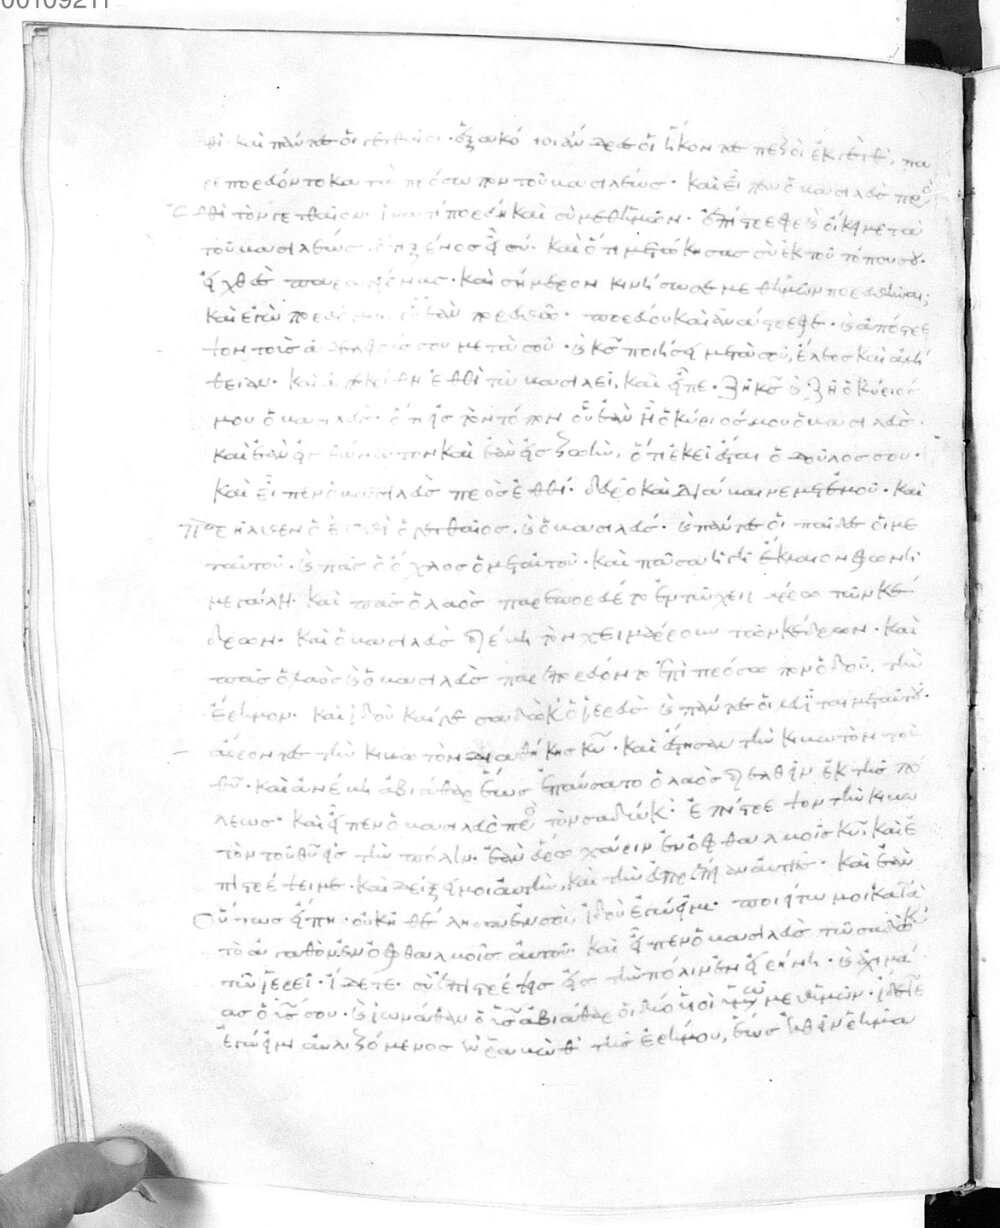 00109211
καὶ πάντες οἱ γεθθαῖοι· ἑξακόσιοι ἄνδρες οἱ ἥκοντες πεζοὶ ἐκ γέθ, πα
ρεπορεύοντο κατὰ πρόσωπον τοῦ βασιλέως· καὶ εἶπεν ὁ βασιλεὺς πρὸς
ἐθθὶ τὸν γεθθαῖον· ἱνατί πορεύῃ καὶ σὺ μεθ' ἡμῶν· ἐπίστρεφε καὶ οἴκει μετὰ
τοῦ βασιλέως· ὅτι ξένος εἶ σύ· καὶ ὅτι μετῴκησας σὺ ἐκ τοῦ τόπου σου·
ἐχθὲς παραγέγονας· καὶ σήμερον κινήσω σε μεθ' ἡμῶν πορευθῆναι;
καὶ ἐγὼ πορεύσομαι οὗ ἐὰν πορευθῶ· πορεύου καὶ ἀνάστρεφε· καὶ ἀπόστρε
ψον τοὺς ἀδελφούς σου μετὰ σοῦ· καὶ κς ποιήσει μετὰ σοῦ, ἔλεος καὶ ἀλή
θειαν· καὶ ἀπεκρίθη ἐθθὶ τῷ βασιλεῖ, καὶ εἶπε· ζῇ κς καὶ ζῇ ὁ κύριός
μου ὁ βασιλεύς· ὅτι εἰς τὸν τόπον οὗ ἐὰν ᾖ ὁ κύριός μου ὁ βασιλεύς·
καὶ ἐὰν εἰς θάνατον καὶ ἐὰν εἰς ζωήν, ὅτι ἐκεῖ ἔσται ὁ δοῦλός σου·
καὶ εἶπεν ὁ βασιλεὺς πρὸς ἐθθί· δεῦρο καὶ διάβαινε μετ' ἐμοῦ· καὶ
παρῆλθεν ὁ ἐθθὶ ὁ γεθθαῖος, καὶ ὁ βασιλεύς· καὶ πάντες οἱ παῖδες οἱ με
τ' αὐτοῦ· καὶ πᾶς ὁ ὄχλος ὁ μετ' αὐτοῦ· καὶ πᾶσα ἡ γῆ ἔκλαιον φωνῇ
μεγάλῃ· καὶ πᾶς ὁ λαὸς παρεπορεύετο ἐν τῷ χειμάρρῳ τῶν κέ
δρων· καὶ ὁ βασιλεὺς διέβη τὸν χειμάρρουν τῶν κέδρων· καὶ
πᾶς ὁ λαὸς καὶ ὁ βασιλεὺς παρεπορεύοντο ἐπὶ πρόσωπον ὁδοῦ, τὴν
ἔρημον· καὶ ἰδοὺ καί γε σαδὼκ ὁ ἱερεὺς καὶ πάντες οἱ λευῖται μετ' αὐτοῦ·
αἴροντες τὴν κιβωτὸν διαθήκης κυ· καὶ ἔστησαν τὴν κιβωτὸν τοῦ
θυ· καὶ ἀνέβη ἀβιάθαρ ἕως ἐπαύσατο ὁ λαὸς διελθεῖν ἐκ τῆς πό
λεως· καὶ εἶπεν ὁ βασιλεὺς πρὸς τὸν σαδώκ· ἐπίστρεψον τὴν κιβω
τὸν τοῦ θυ εἰς τὴν πόλιν· ἐὰν εὕρω χάριν ἐν ὀφθαλμοῖς κυ· καὶ ἐ
πιστρέψει με· καὶ δείξει μοι αὐτὴν, καὶ τὴν εὐπρέπειαν αὐτῆς· καὶ ἐὰν
οὕτως εἴπῃ· οὐκ ἠθέληκα ἐν σοί, ἰδοὺ ἐγώ εἰμι· ποιείτω μοι κατὰ
τὸ ἀγαθὸν ἐν ὀφθαλμοῖς αὐτοῦ· καὶ εἶπεν ὁ βασιλεὺς τῷ σαδὼκ
τῷ ἱερεῖ· ἴδετε· σὺ ἐπιστρέφεις εἰς τὴν πόλιν ἐν εἰρήνῃ· καὶ ἀχιμά
ας ὁ υἱός σου· καὶ ἰωνάθαν ὁ υἱὸς ἀβιάθαρ οἱ δύο υἱοὶ ὑμῶν μεθ' ὑμῶν· ἴδετε
ἐγώ εἰμι αὐλιζόμενος ἐν ἀραβὼθ τῆς ἐρήμου, ἕως ἐλθεῖν ῥῆμα